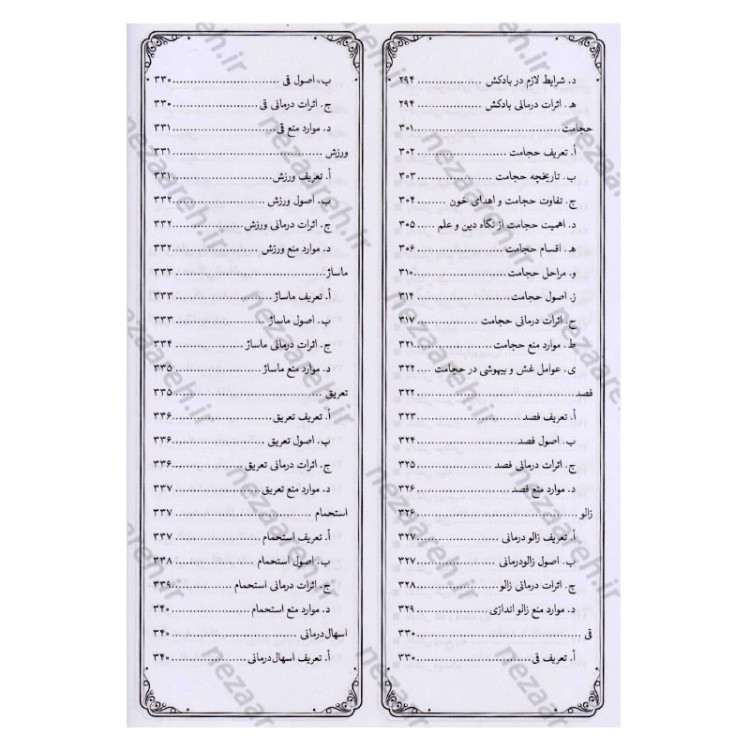 د. شرایط لازم در بادکش ............... ۲۹۴
هـ. اثرات درمانی بادکش ............... ۲۹۴
حجامت ............... ۳۰۱
أ. تعریف حجامت ............... ۳۰۲
ب. تاریخچه حجامت ............... ۳۰۳
ج. تفاوت حجامت و اهدای خون ............... ۳۰۴
د. اهمیت حجامت از نگاه دین و علم ..... ۳۰۵
هـ. اقسام حجامت ............... ۳۰۶
و. مراحل حجامت ............... ۳۱۰
ز. اصول حجامت ............... ۳۱۴
ح. اثرات درمانی حجامت ............... ۳۱۷
ط. موارد منع حجامت ............... ۳۲۱
ی. عوامل غش و بیهوشی در حجامت .... ۳۲۲
فصد ............... ۳۲۲
أ. تعریف فصد ............... ۳۲۳
ب. اصول فصد ............... ۳۲۴
ج. اثرات درمانی فصد ............... ۳۲۵
د. موارد منع فصد ............... ۳۲۶
زالو ............... ۳۲۶
أ. تعریف زالو درمانی ............... ۳۲۷
ب. اصول زالودرمانی ............... ۳۲۷
ج. اثرات درمانی زالو ............... ۳۲۸
د. موارد منع زالو اندازی ............... ۳۲۹
قی ............... ۳۳۰
أ. تعریف قی ............... ۳۳۰
ب. اصول قی ............... ۳۳۰
ج. اثرات درمانی قی ............... ۳۳۰
د. موارد منع قی ............... ۳۳۱
ورزش ............... ۳۳۱
أ. تعریف ورزش ............... ۳۳۱
ب. اصول ورزش ............... ۳۳۲
ج. اثرات درمانی ورزش ............... ۳۳۲
د. موارد منع ورزش ............... ۳۳۲
ماساژ ............... ۳۳۳
أ. تعریف ماساژ ............... ۳۳۳
ب. اصول ماساژ ............... ۳۳۳
ج. اثرات درمانی ماساژ ............... ۳۳۴
د. موارد منع ماساژ ............... ۳۳۵
تعریق ............... ۳۳۵
أ. تعریف تعریق ............... ۳۳۶
ب. اصول تعریق ............... ۳۳۶
ج. اثرات درمانی تعریق ............... ۳۳۶
د. موارد منع تعریق ............... ۳۳۷
استحمام ............... ۳۳۷
أ. تعریف استحمام ............... ۳۳۷
ب. اصول استحمام ............... ۳۳۸
ج. اثرات درمانی استحمام ............... ۳۳۹
د. موارد منع استحمام ............... ۳۴۰
اسهال‌درمانی ............... ۳۴۰
أ. تعریف اسهال‌درمانی ............... ۳۴۰
nezaareh.ir